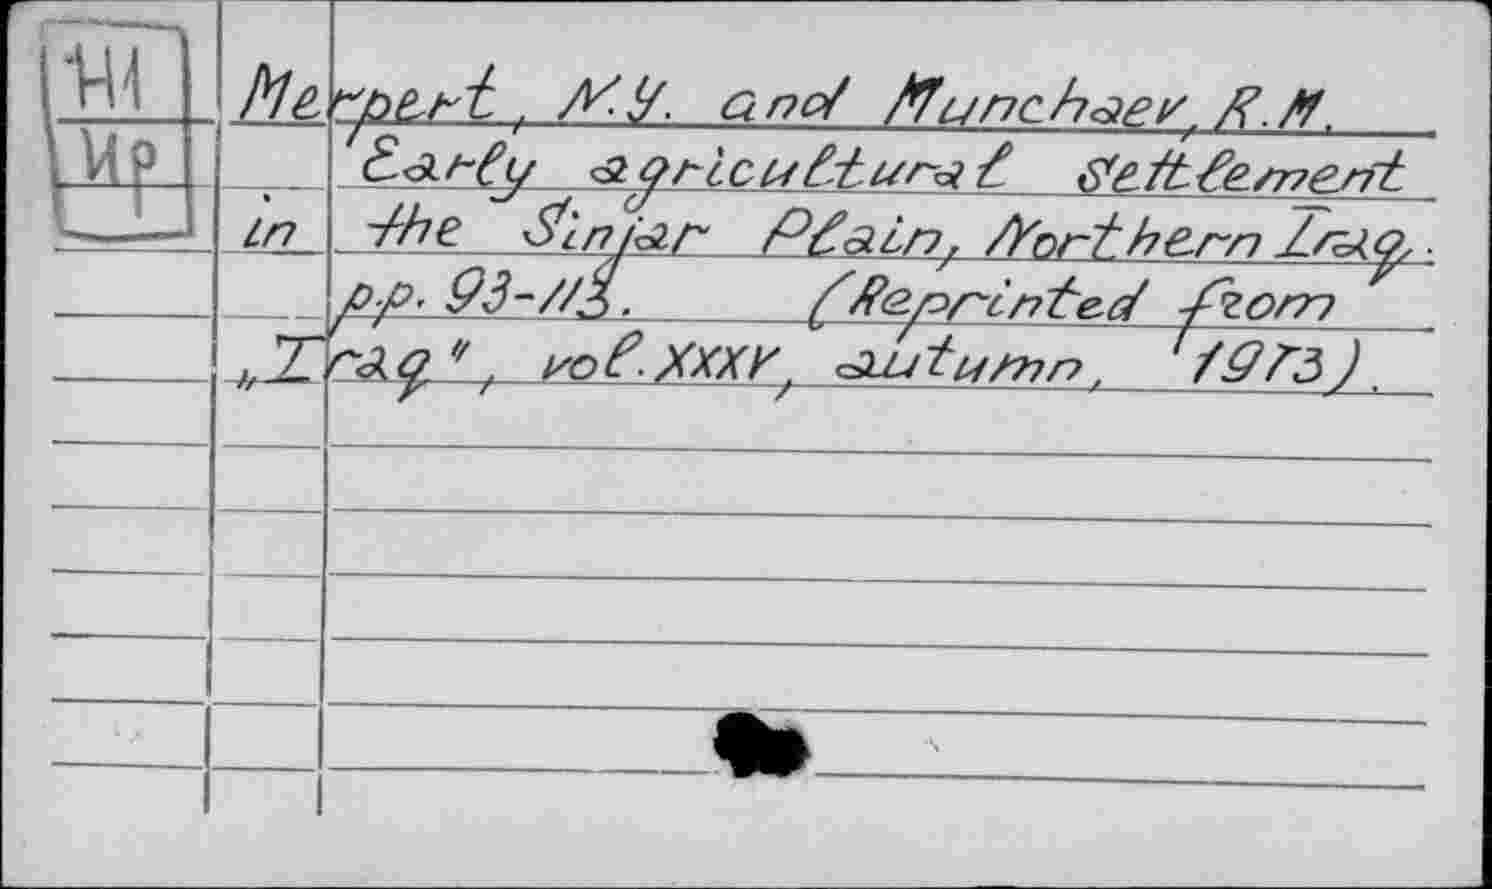 ЧИ
Ир
Merpert, N.Y. and Munchaev, R.M.
Early agricultural Settlement
in the Sinjar Plain, Northern Iraq.
pp. 93-113. (Reprinted from
„Iraq", vol. XXXV, autumn, 1973).